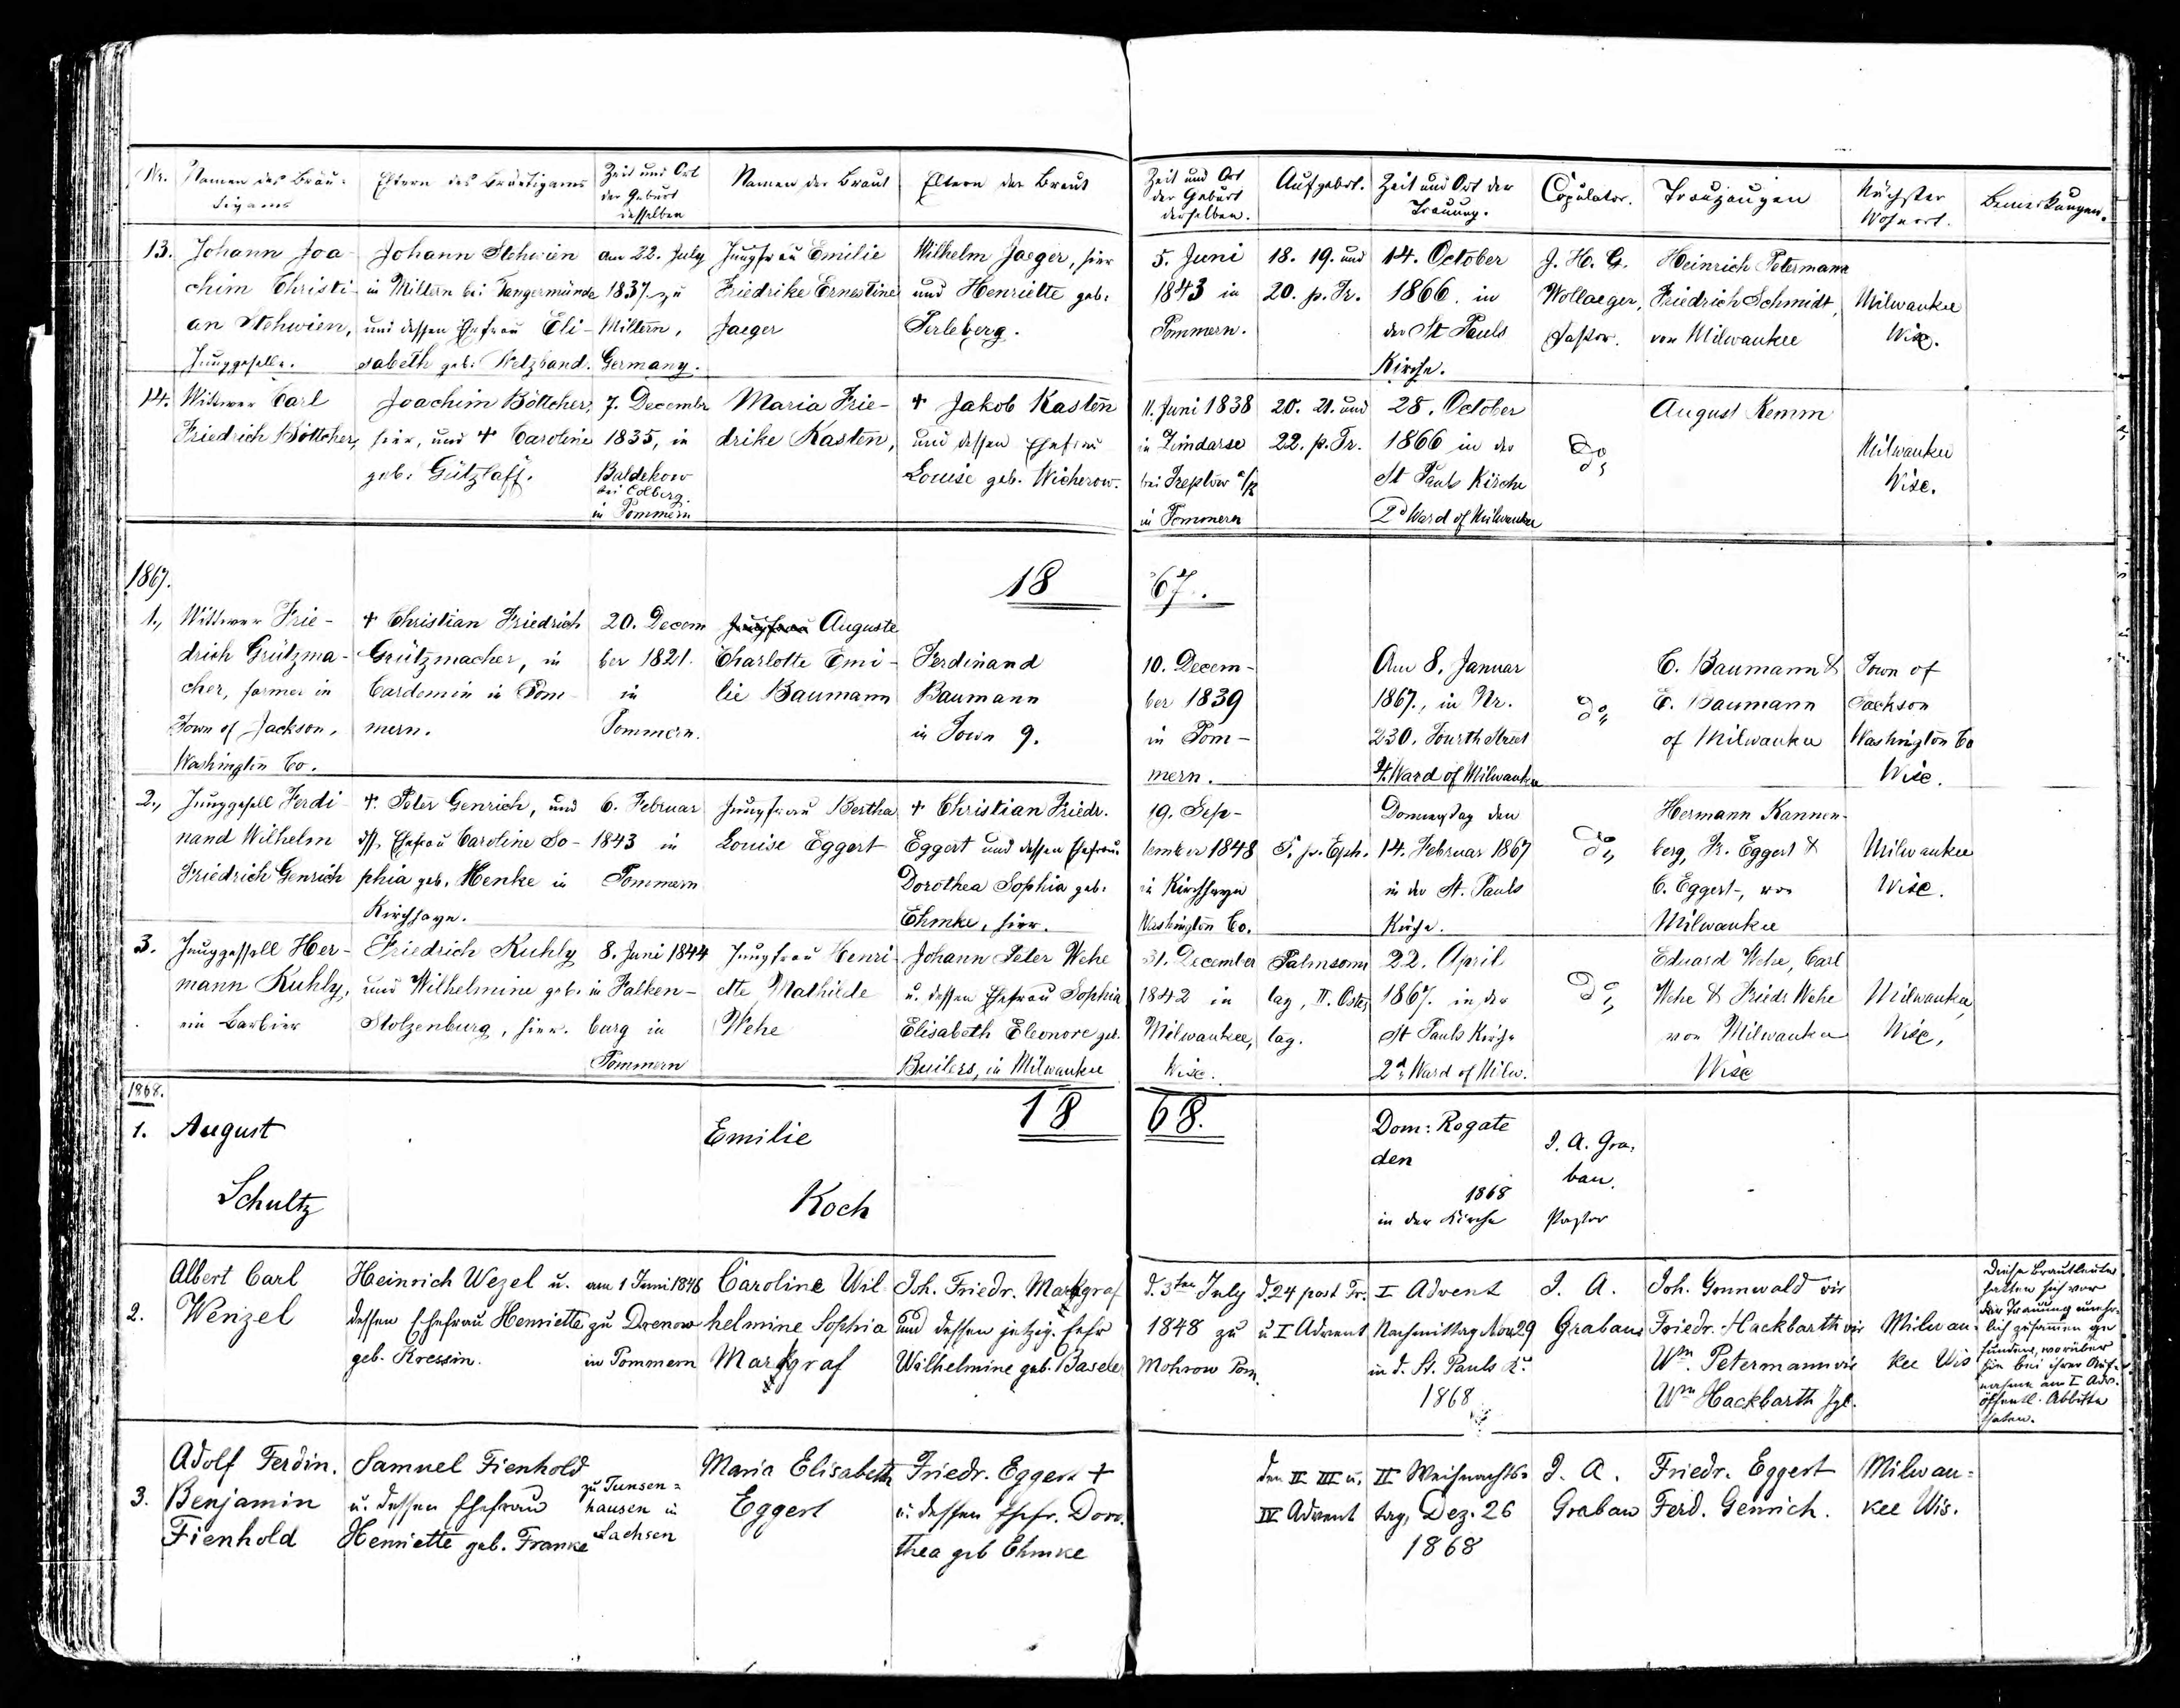 Nr.
Namen des Bräu-
tigams
Eltern des Bräutigams
Zeit und Ort
der Geburt
desselben
Namen der Braut
Eltern der Braut
Zeit und Ort
der Geburt
derselben.
Aufgebot.
Zeit und Ort der
Trauung.
Copulator.
Trauzeugen
Nächster
Wohnort.
Bemerkungen.
13.
Johann Joa-
chim Christi-
an Stehwien,
Junggeselle.
Johann Stehwien
in Miltern bei Tangermünde
und dessen Ehefrau Eli-
sabeth geb. Welzband.
am 22. July
1837 zu
Miltern,
Germany.
Jungfrau Emilie
Friedrike Ernestine
Jaeger
Wilhelm Jaeger, hier
und Henriette geb.
Perleberg.
5. Juni
1843 in
Pommern.
18. 19. und
20. p. Tr.
14. October
1866. in
der St Pauls
Kirche.
J. H. G.
Wollaeger,
Pastor.
Heinrich Petermann
Friedrich Schmidt,
von Milwaukee
Milwaukee
Wisc.
14.
Wittwer Carl
Friedrich Böttcher,
Joachim Böttcher,
hier, und + Caroline
geb. Gützlaff.
7. Decembr
1835, in
Baldekow
bei Colberg.
in Pommern
Maria Frie-
drike Kasten,
+ Jakob Kasten
und dessen Ehefrau
Louise geb. Wicherow.
11. Juni 1838
in Zimdarse
bei Treptow a/R
in Pommern
20. 21. und
22. p. Tr.
28. October
1866 in der
St Pauls Kirche
2d Ward of Milwaukee
do
August Kemm
Milwaukee
Wisc.
1867.
18
67.
1.,
Wittwer Frie-
drich Grützma-
cher, farmer in
Town of Jackson,
Washington Co.
+ Christian Friedrich
Grützmacher, in
Cardemin in Pom-
mern.
20. Decem
ber 1821.
in
Pommern.
Jungfrau Auguste
Charlotte Emi-
lie Baumann
Ferdinand
Baumann
in Town 9.
10. Decem-
ber 1839
in Pom-
mern.
Am 8. Januar
1867., in Nr.
230. Fourth Street
4. Ward of Milwaukee
do,,
C. Baumann &
E. Baumann
of Milwaukee
Town of
Jackson
Washington Co
Wisc.
2.,
Junggesell Ferdi-
nand Wilhelm
Friedrich Genrich
+. Peter Genrich, und
dss. Ehefrau Caroline So-
phia geb. Henke in
Kirchhayn.
6. Februar
1843 in
Pommern
Jungfrau Bertha
Louise Eggert
+ Christian Friedr.
Eggert und dessen Ehefrau
Dorothea Sophia geb.
Ehmke, hier.
19. Sep-
tember 1848
in Kirchhayn
Washington Co.
5. p. Eph.
Donnerstag den
14. Februar 1867
in der St. Pauls
Kirche.
do,,
Hermann Kannen-
berg, Fr. Eggert &
C. Eggert, von
Milwaukee
Milwaukee
Wisc.
3.
Junggesell Her-
mann Kuhly,
ein Barbier
Friedrich Kuhly
und Wilhelmine geb.
Stolzenburg, hier.
8. Juni 1844
in Falken-
burg in
Pommern
Jungfrau Henri-
ette Mathilde
Wehe
Johann Peter Wehe
u. dessen Ehefrau Sophia
Elisabeth Eleonore geb.
Builers, in Milwaukee
31. December
1842 in
Milwaukee,
Wisc.
Palmsonn
tag, II. Oster
tag.
22. April
1867. in der
St Pauls Kirche
2d Ward of Milw.
do,,
Eduard Wehe, Carl
Wehe & Friedr Wehe
von Milwaukee
Wisc
Milwaukee,
Wisc,
1868.
18
68.
1.
August
Schultz
Emilie
Koch
Dom: Rogate
den
1868
in der Kirche
J. A. Gra-
bau.
Pastor
2.
Albert Carl
Wenzel
Heinrich Wezel u.
dessen Ehefrau Henriette
geb. Kressin.
am 1 Juni 1846
zu Drenow
in Pommern
Caroline Wil
helmine Sophia
Markgraf
Joh. Friedr. Markgraf
und dessen jetzig. Eefr
Wilhelmine geb. Baseler
d. 3ten July
1848 zu
Mohrow Pom.
d. 24 post Tr.
u I Advent
I Advent
Nachmittag Nov 29
in d. St. Pauls K.
1868
J. A.
Grabau
Joh. Gonnwald vir
Friedr. Hackbarth vir
Wm. Petermann vir
Wm Hackbarth Jgl.
Milwau-
kee Wis
Diese Brautleute
hatten sich vor
der Trauung unehr-
lich zusammen ge
funden, worüber
sie bei ihrer Auf-
nahme am I Adv.
öffentl. Abbitte
thaten.
3.
Adolf Ferdin.
Benjamin
Fienhold
Samuel Fienhold
u. dessen Ehefrau
Henriette geb. Franke
zu Tunsen-
hausen in
Sachsen
Maria Elisabeth
Eggert
Friedr. Eggert +
u. dessen Ehefr. Doro.
thea geb Ehmke
den II III u.
IV Advent
II Weihnachts-
tag, Dez. 26
1868
J. A.
Grabau
Friedr. Eggert
Ferd. Genrich.
Milwau-
kee Wis.